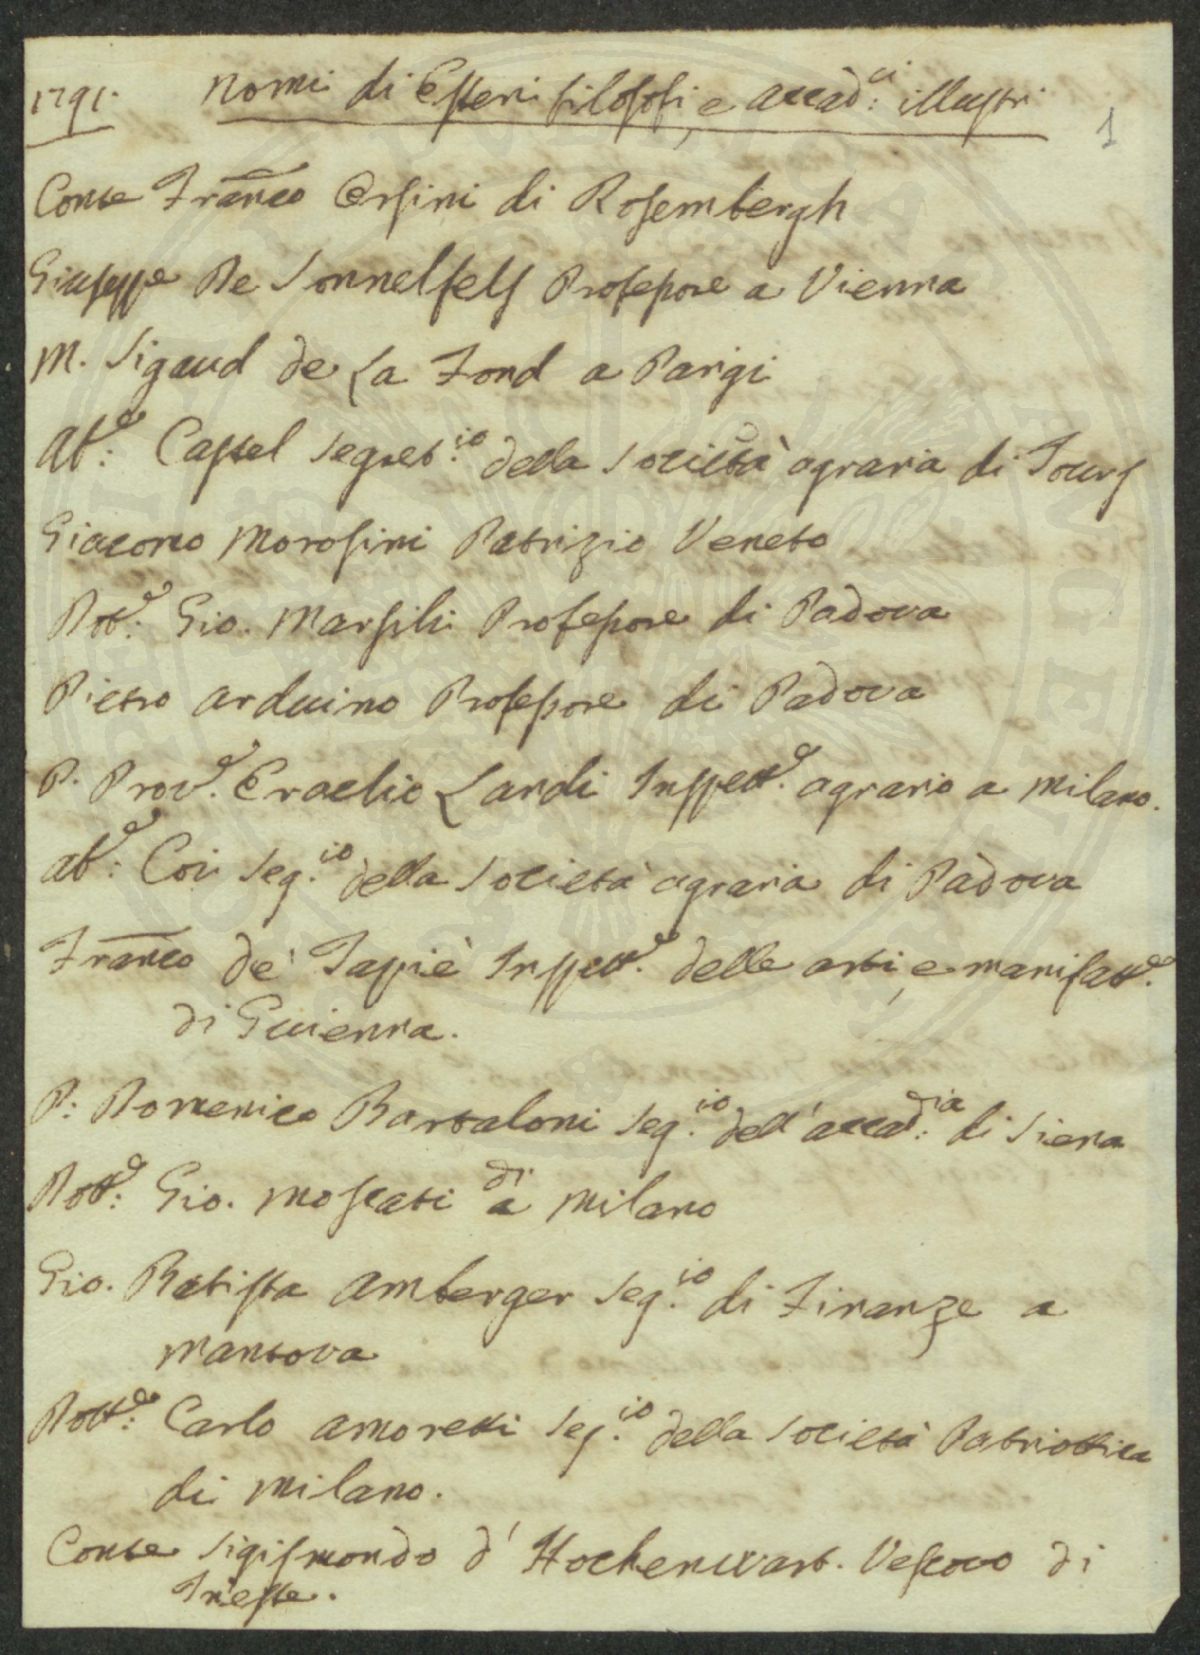 1791. Nomi di Esteri filosofi, e accad:ci illustri
1
Conte Franco Orsini di Rosembergh
Giuseppe De Sonnelfels Professore a Vienna
M. Sigaud de La Fond a Parigi
Ab:e Cassel Segret:io della Società agraria di Tours
Giacomo Morosini Patrizio Veneto
Dot:e Gio. Marsili Professore di Padova
Pietro Arduino Professore di Padova
P. Prov.e Eraclio Landi Inspett.e agrario a Milano.
Ab:e Coi Seg:io della Società agraria di Padova
Franco de Tapiè Inspett.e delle arti, e manifatt.e
di Guienna.
P: Domenico Bartaloni Seg:io dell'accad:ia di Siena
Dott:e Gio. Moscati di a Milano
Gio. Batista Amberger Seg:io di Finanze a
Mantova
Dott:e Carlo Amoretti Seg:io della Società Patriottica
di Milano.
Conte Sigismondo d'Hochenwart. Vescovo di
Trieste.